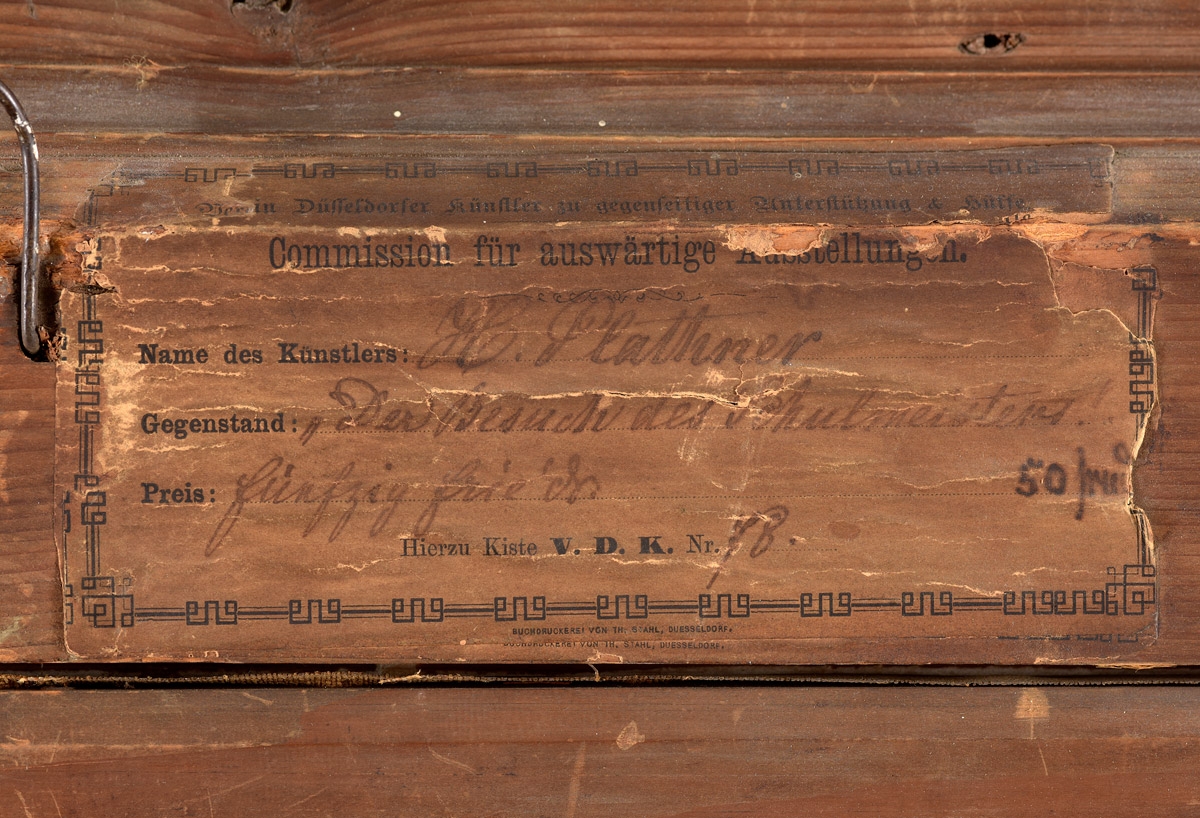 Verein Düsseldorfer Künstler zu gegenseitiger Unterstützung & Hülfe
Commission für auswärtige Ausstellungen.
Name des Künstlers: H. Plathner
Gegenstand: „Der Besuch des Schulmeisters!
Preis: fünfzig frie'dr. 50
Hierzu Kiste V. D. K. Nr. 78.
BUCHDRUCKEREI VON TH. STAHL, DUESSELDORF.
BUCHDRUCKEREI VON TH. STAHL, DUESSELDORF.